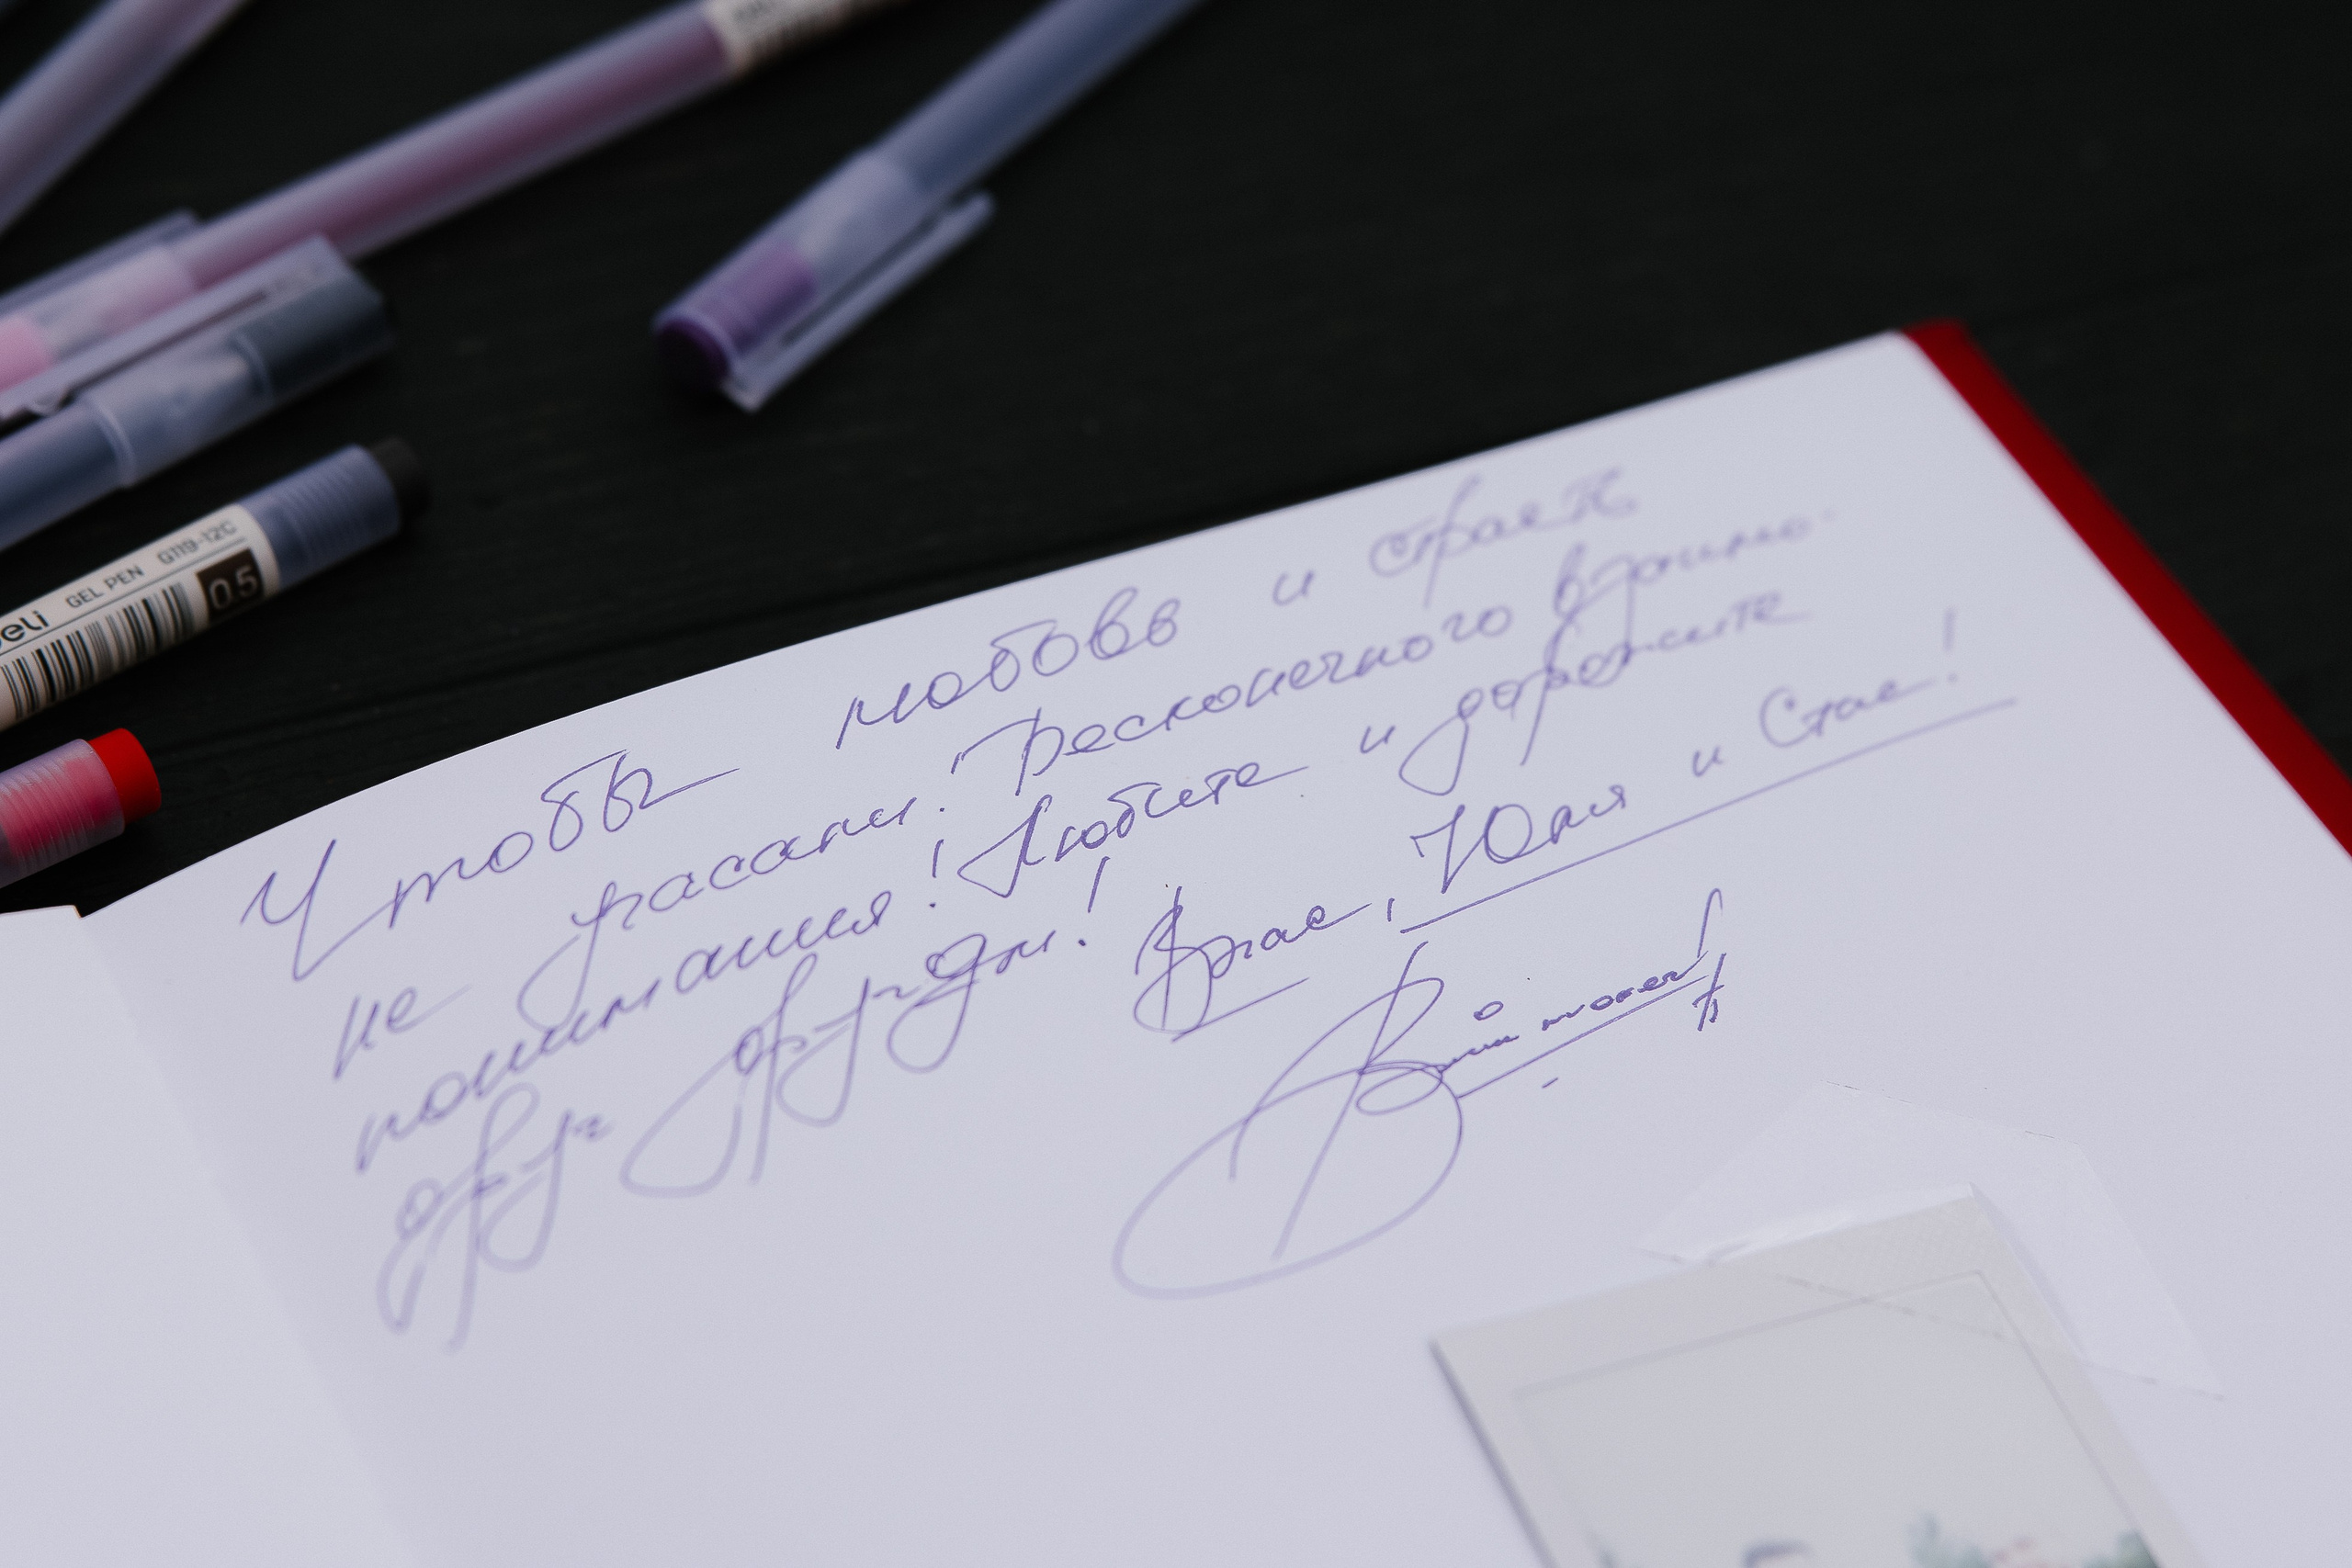 GEL PEN G119-12C
0.5
Чтобы любовь и страсть
не угасали! Бесконечного взаимо-
понимания! Любите и дорожите
друг другом!
Вас, Юля и Стас!